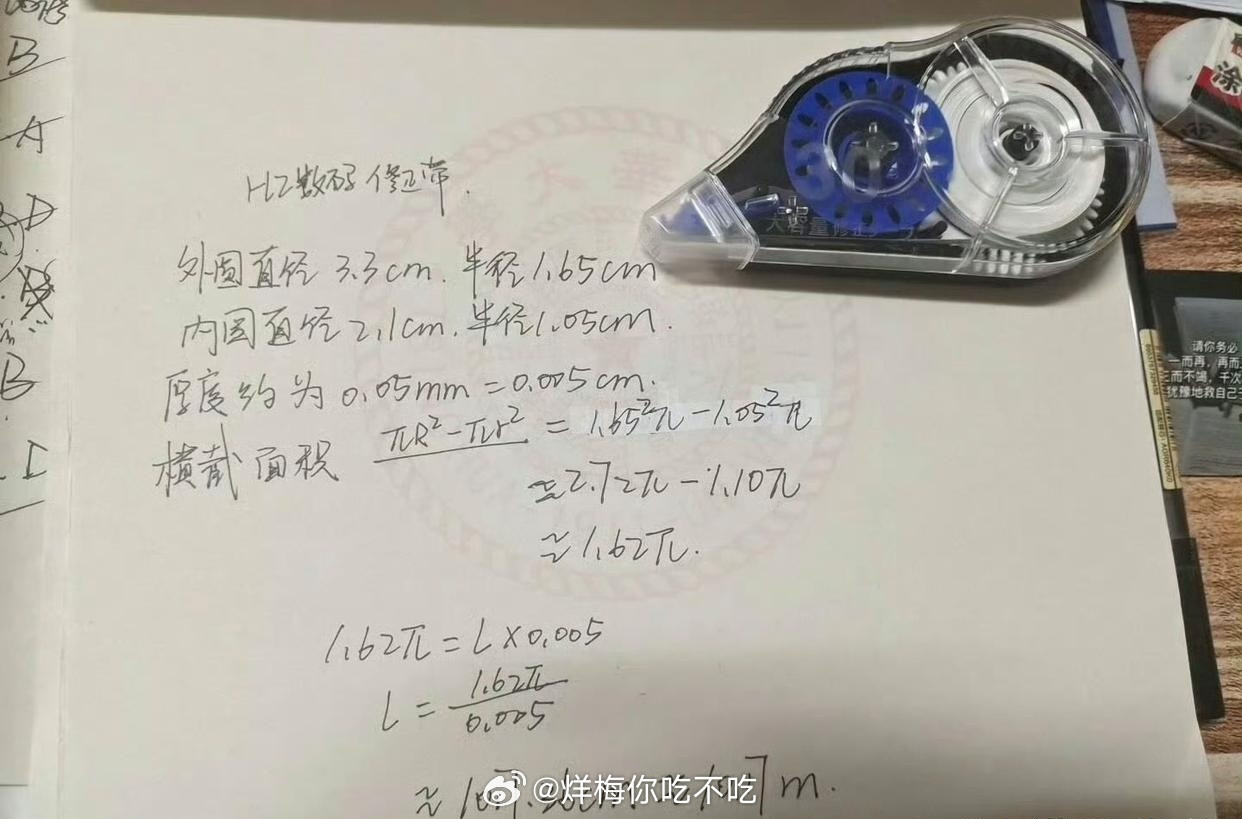 HZ数码修正带.
外圆直径3.3cm.半径1.65cm
内圆直径2.1cm.半径1.05cm.
厚度约为0.05mm=0.005cm.
横截面积 πR²-πr² = 1.65²π-1.05²π
≈2.72π-1.10π
≈1.62π.
1.62π=L×0.005
L=1.62π/0.005
m.
@烊梅你吃不吃
大容量修正
涂
请你务必
一而再,再而三
三而不竭,千次
犹豫地救自己
B
A
D
B